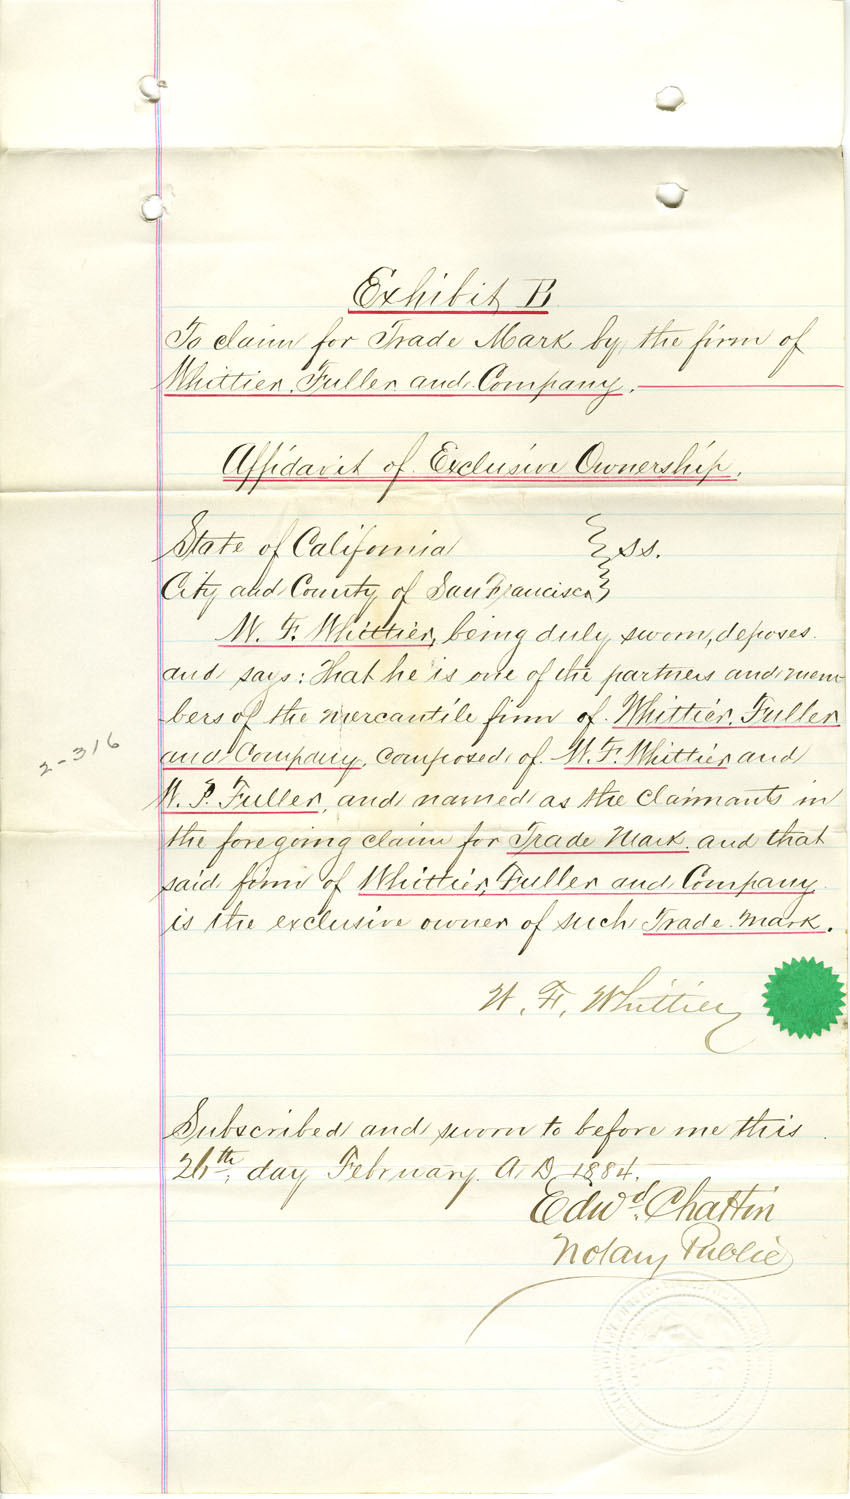 Exhibit B
To claim for Trade Mark by the firm of
Whittier, Fuller and Company.
Affidavit of Exclusive Ownership.
State of California } ss.
City and County of San Francisco }
W. F. Whittier, being duly sworn, deposes
and says: That he is one of the partners and mem-
bers of the mercantile firm of Whittier, Fuller
and Company, composed of W. F. Whittier and
2-316
W. P. Fuller, and named as the claimants in
the foregoing claim for Trade Mark. and that
said firm of Whittier, Fuller and Company
is the exclusive owner of such Trade Mark.
W. F. Whittier
Subscribed and sworn to before me this
26th. day February. A D 1884.
Edwd. Chattin
Notary Public